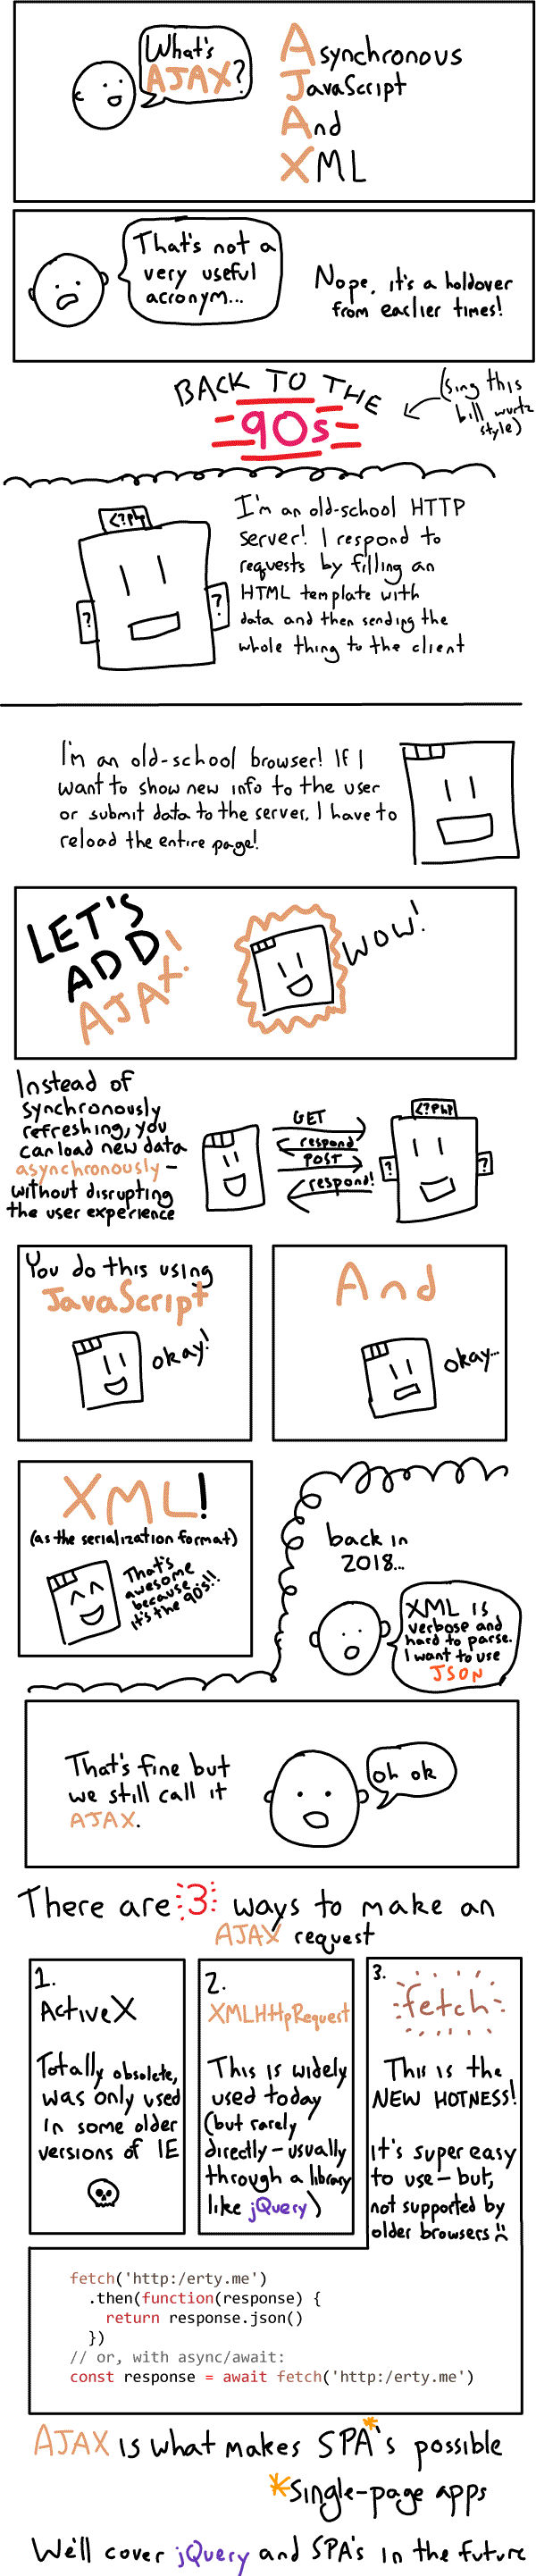 What's
AJAX?
Asynchronous
JavaScript
And
XML
That's not a
very useful
acronym...
Nope, it's a holdover
from earlier times!
BACK TO THE
90s
(sing this
bill wurtz
style)
<?php
?
?
I'm an old-school HTTP
server! I respond to
requests by filling an
HTML template with
data and then sending the
whole thing to the client
I'm an old-school browser! If I
want to show new info to the user
or submit data to the server, I have to
reload the entire page!
LET'S
ADD
AJAX!
WOW!
Instead of
synchronously
refreshing, you
can load new data
asynchronously -
without disrupting
the user experience
GET
respond
POST
respond!
<?php
?
?
You do this using
JavaScript
okay!
And
okay...
XML!
(as the serialization format)
That's
awesome
because
it's the 90's!!
back in
2018...
XML is
verbose and
hard to parse.
I want to use
JSON
That's fine but
we still call it
AJAX.
oh ok
There are 3 ways to make an
AJAX request
1.
ActiveX
Totally obsolete,
was only used
in some older
versions of IE
2.
XMLHttpRequest
This is widely
used today
(but rarely
directly - usually
through a library
like jQuery)
3.
fetch
This is the
NEW HOTNESS!
it's super easy
to use - but,
not supported by
older browsers :(
fetch('http:/erty.me')
.then(function(response) {
return response.json()
})
// or, with async/await:
const response = await fetch('http:/erty.me')
AJAX is what makes SPA*'s possible
*Single-page apps
We'll cover jQuery and SPA's in the future